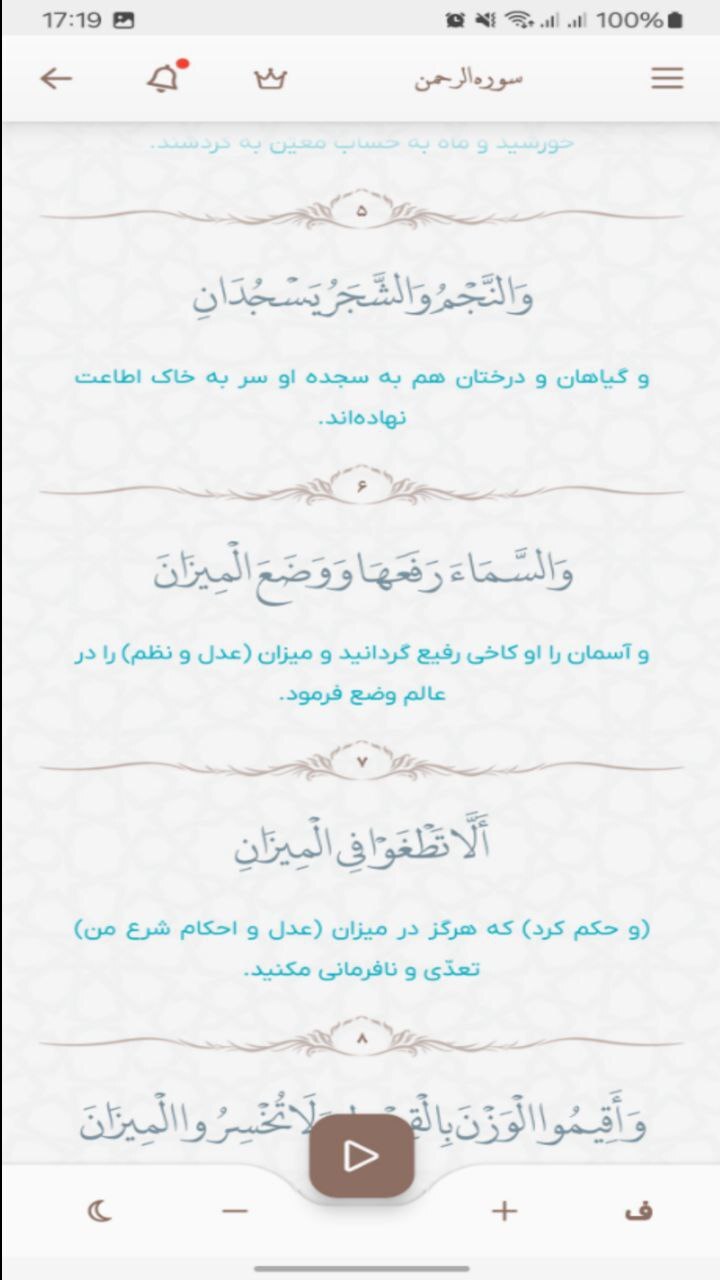 17:19 100%
سوره‌الرحمن
خورشید و ماه به حساب معیّن به گردشند.
۵
وَالنَّجْمُ وَالشَّجَرُ يَسْجُدَانِ
و گیاهان و درختان هم به سجده او سر به خاک اطاعت
نهاده‌اند.
۶
وَالسَّمَاءَ رَفَعَهَا وَوَضَعَ الْمِيزَانَ
و آسمان را او کاخی رفیع گردانید و میزان (عدل و نظم) را در
عالم وضع فرمود.
۷
أَلَّا تَطْغَوْا فِي الْمِيزَانِ
(و حکم کرد) که هرگز در میزان (عدل و احکام شرع من)
تعدّی و نافرمانی مکنید.
۸
وَأَقِيمُوا الْوَزْنَ تُخْسِرُوا الْمِيزَانَ
ف